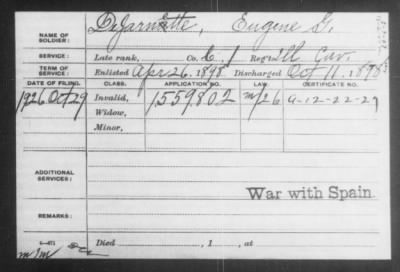 NAME OF SOLDIER: DeJarnette, Eugene G.
SERVICE: Late rank, Co. C, 1 Reg't Ill Cav.
TERM OF SERVICE: Enlisted Apr 26, 1898 Discharged Oct 11, 1898
DATE OF FILING. CLASS. APPLICATION NO. LAW. CERTIFICATE NO.
1926 Oct 29 Invalid, 1559802 m/26 a-12-22-27
Widow,
Minor,
ADDITIONAL SERVICES:
War with Spain.
REMARKS:
Died , 1 , at